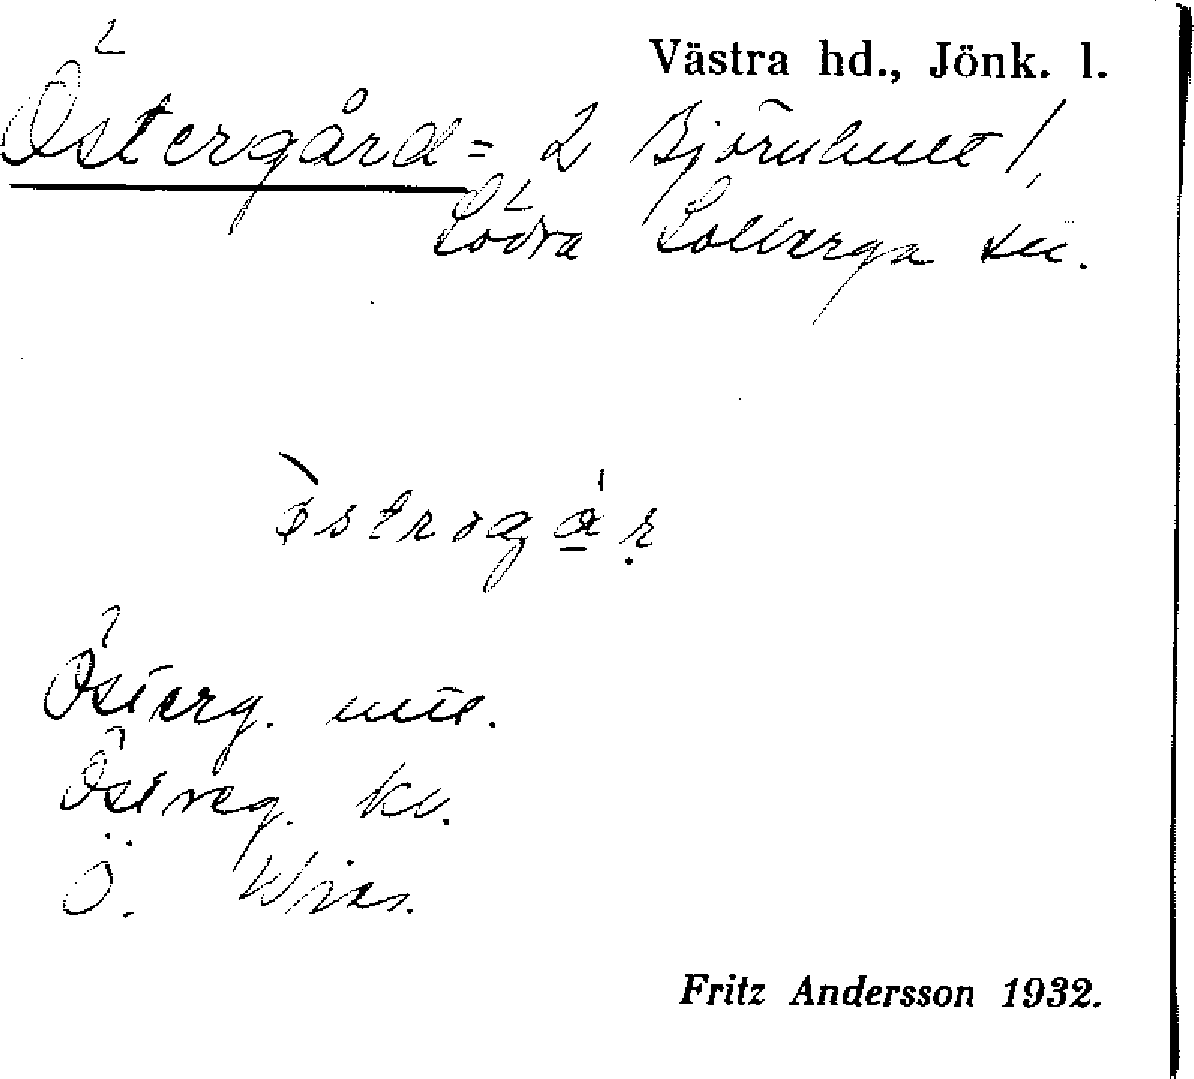 Västra hd., Jönk. l.
Östergård = 2 Björnhult /,
Södra Solberga sn.
östrogår
Österg. mtl.
Östreg. kv.
Ö.
Fritz Andersson 1932.